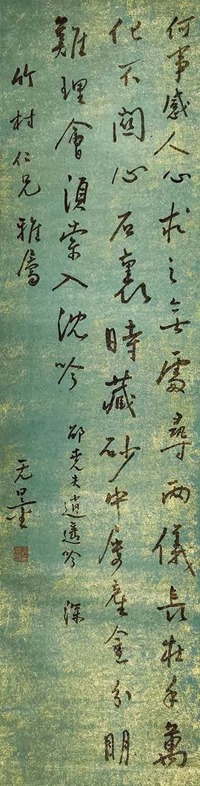 何事感人心求之無處尋两儀長在手萬
化不關心石裏時藏砂中屢產金分明
難理會須索入沈吟 邵堯夫逍遙吟 深
竹村仁兄雅屬
无量